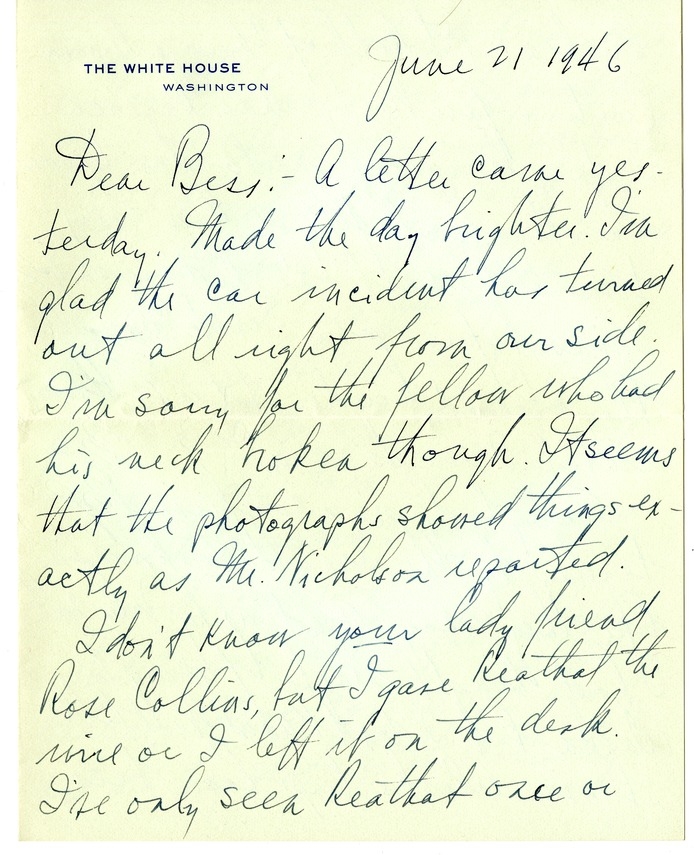 THE WHITE HOUSE
WASHINGTON
June 21 1946
Dear Bess:- A letter came yes-
terday. Made the day brighter. I'm
glad the car incident has turned
out all right from our side.
I'm sorry for the fellow who had
his neck broken though. It seems
that the photographs showed things ex-
actly as Mr. Nicholson reported.
I don't know your lady friend
Rose Collins, but I gave Reathal the
wire or I left it on the desk.
I've only seen Reathal once or